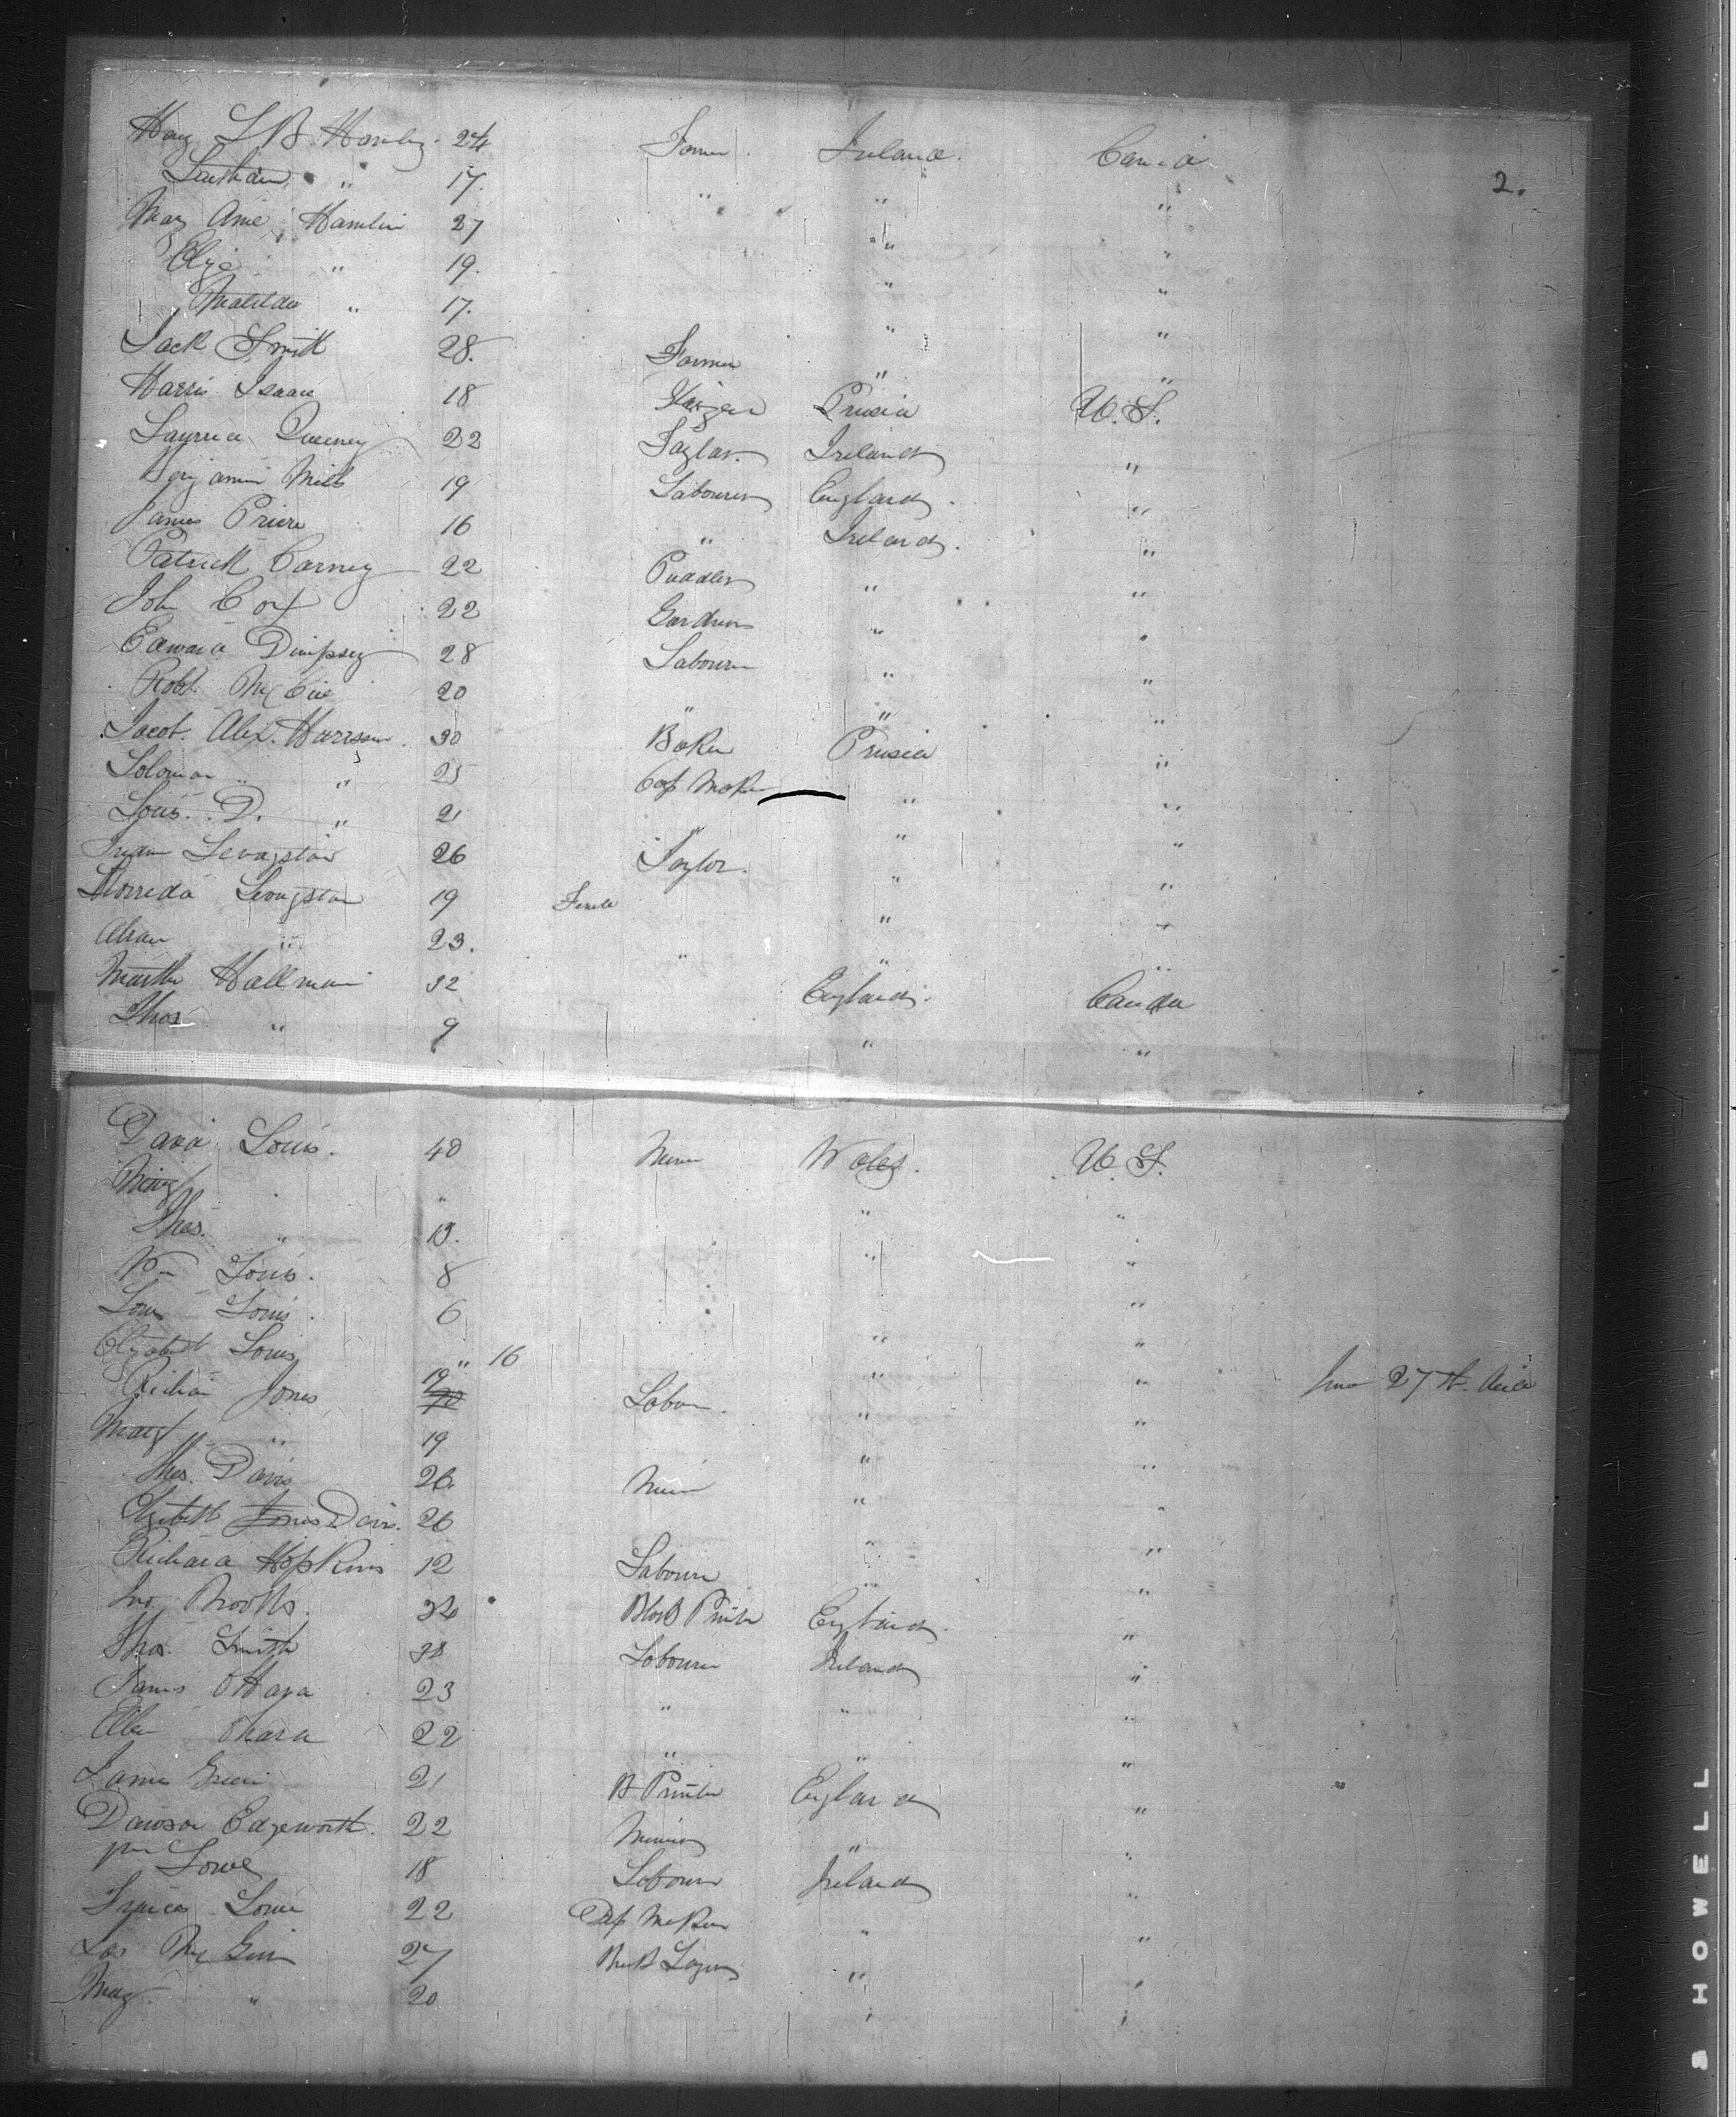 L B 24 Farmer. Ireland. Canada
2.
" 17. " " "
Mary Anne Hamlin 27 " "
Eliza " 19. " "
Matilda " 17. " "
Jack Smith 28. Farmer " "
Harris Isaac 18 Prusia U. S.
22 Taylor. Ireland "
Benjamin Mills 19 Labourer England. "
James 16 " Ireland. "
Patrick Carney 22 Puddler " "
John Cox 22 Gardner " "
Edward Dempsey 28 Labourer " "
Robt. 20 " " "
Jacob. Alex. Harrison 30 Baker Prusia "
Solomon " " 25 Cap Maker " "
Louis. D. " 21 " " "
Levagston 26 Taylor. " "
Levagston 19 Female " "
" 23. " " "
Martha Hallman 32 England. Canada
Thos " 9 " "
David Louis. 40 Miner Wales. U. S.
Mary " " "
Thos. " 13. " "
Wm Louis. 8 "
Louis 6 " "
Elizabeth Louis " 16 " "
Richard Jones 19 Labour. " " June 27th
Mary " 19 " "
Thos. Davis 26. Miner " "
Elizabeth Jones Davis. 26 " "
Richard Hopkins 12 Labourer " "
Jno. Brooks. Block Printer England. "
Thos. Smith 38 Labourer Ireland "
James OHara 23 " " "
Ellen Ohara 22 " " "
James Green 21 B Printer England "
Dawson Edgeworth. 22 Miner " "
Wm Lowe 18 Labourer Ireland "
Lowe 22 Cap Maker " "
27 Brick Layer " "
Mary. " 20 " "
SHOWELL